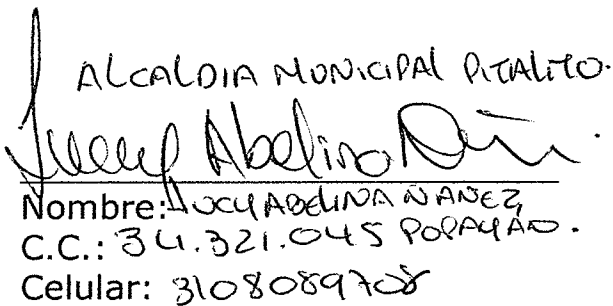 ALCALDIA MUNICIPAL PITALITO.
Lucy Abelina
Nombre: LUCY ABELINA ÑAÑEZ
C.C.: 34.321.045 POPAYAN.
Celular: 3108089708